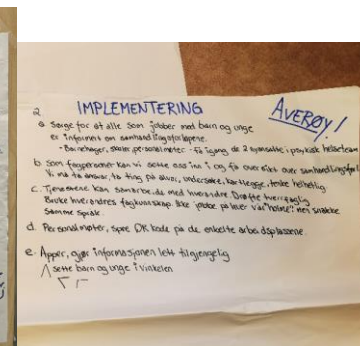 AVERØY!
2 IMPLEMENTERING
a Sørge for at alle som jobber med barn og unge
er informert om samhandlingsforløpene.
- Barnehager, skoler, personalmøter - Få igang de 2 ansatte i psykisk helseteam
b som fagpersoner kan vi sette oss inn i og få oversikt over samhandlingsforl
Vi må ta ansvar, ta ting på alvor, undersøke, kartlegge, tenke helhetlig
c. Tjenestene kan samarbeide med hverandre. Drøfte tverrfaglig
Bruke hverandres fagkunnskap. Ikke jobbe på hver vår "holme" men snakke
samme språk.
d. Personalmøter, spre QR kode på de enkelte arbeidsplassene.
e. Apper, gjør informasjonen lett tilgjengelig
sette barn og unge i vinkelen